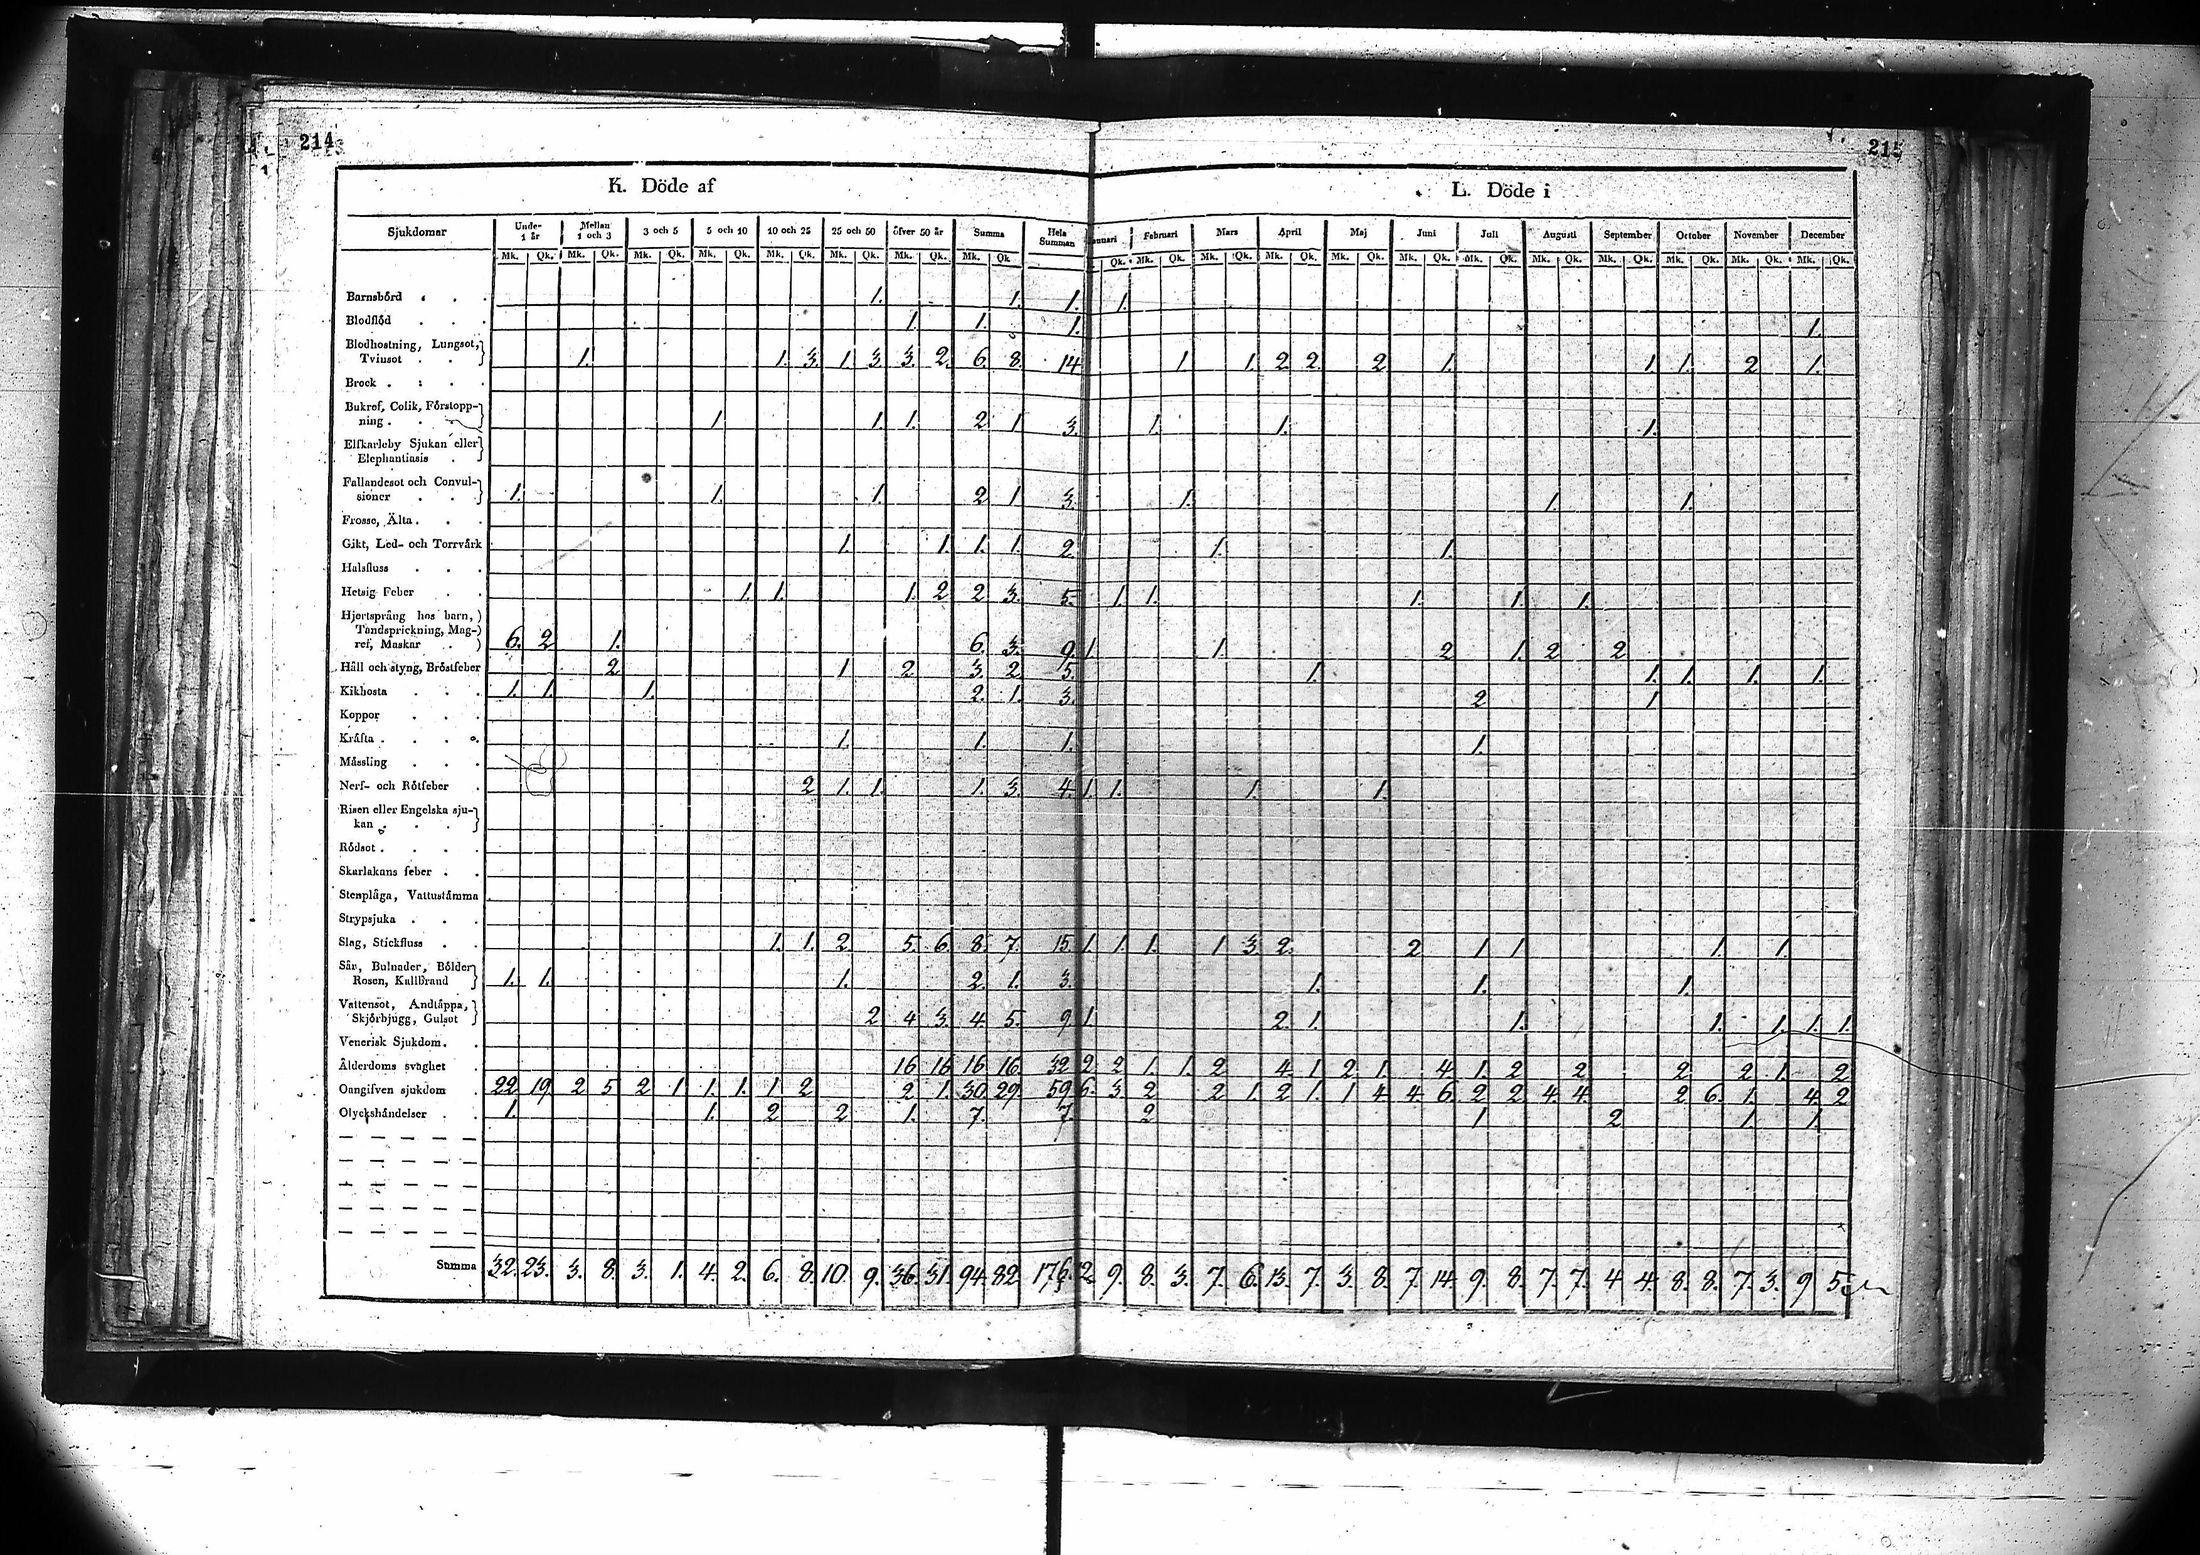 214
215
K. Döde af
L. Döde i
Sjukdomar Under 1 år Mellan 1 och 3 3 och 5 5 och 10 10 och 25 25 och 50 öfver 50 år Summa Hela Summan Januari Februari Mars April Maj Juni Juli Augusti September October November December
Mk. Qk. Mk. Qk. Mk. Qk. Mk. Qk. Mk. Qk. Mk. Qk. Mk. Qk. Mk. Qk. Qk. Mk. Qk. Mk. Qk. Mk. Qk. Mk. Qk. Mk. Qk. Mk. Qk. Mk. Qk. Mk. Qk. Mk. Qk. Mk. Qk. Mk. Qk.
Barnsbörd . . . 1. 1. 1. 1.
Blodflöd . . . 1. 1. 1. 1.
Blodhostning, Lungsot,
Tvinsot . . 1. 1. 3. 1. 3. 3. 2. 6. 8. 14 1 1. 2. 2. 2. 1. 1. 1. 2 1.
Brock . . . .
Bukref, Colik, Förstopp-
ning . . . 1 1. 1. 2 1 3. 1. 1. 1.
Elfkarleby Sjukan eller
Elephantiasis .
Fallandesot och Convul-
sioner . . . 1. 1. 1. 2 1 3. 1. 1. 1.
Frossa, Älta . . .
Gikt, Led- och Torrvärk 1. 1. 1. 1. 2. 1. 1.
Halsfluss . . .
Hetsig Feber . . 1. 1. 1. 2 2 3. 5. 1. 1. 1. 1. 1.
Hjertsprång hos barn,
Tandsprickning, Mag-
ref, Maskar . 6. 2 1. 6. 3. 9. 1 1. 2 1. 2 2
Håll och styng, Bröstfeber 2 1 2 3. 2 5. 1. 1. 1. 1. 1.
Kikhosta . . . 1. 1. 1. 2. 1. 3. 2 1
Koppor . . .
Kräfta . . . . 1. 1. 1. 1.
Mässling . . .
Nerf- och Rötfeber . 2 1. 1. 1. 3. 4. 1. 1. 1. 1.
Risen eller Engelska sju-
kan . . .
Rödsot . . . .
Skarlakans feber . .
Stenplåga, Vattustämma
Strypsjuka . . .
Slag, Stickfluss . . 1. 1. 2. 5. 6. 8. 7. 15 1. 1. 1. 1 3. 2. 2 1 1 1. 1.
Sår, Bulnader, Bölder
Rosen, Kallbrand 1. 1. 1. 2. 1. 3. 1. 1. 1.
Vattensot, Andtäppa,
Skjörbjugg, Gulsot 2 4 3. 4. 5. 9. 1. 2. 1. 1. 1. 1. 1. 1.
Venerisk Sjukdom . .
Ålderdoms svaghet . 16 16 16 16. 32 2. 2 1. 1. 2 4. 1 2. 1. 4. 1. 2 2 2 2 1. 2
Oangifven sjukdom . 22 19. 2 5 2 1 1. 1. 1 2 2 1. 30. 29. 59 6. 3. 2 2 1. 2 1. 1 4 4 6. 2 2 4 4. 2 6. 1. 4. 2
Olyckshändelser . . 1. 1. 2 2 1. 7. 7. 2 1 2 1. 1.
Summa 32. 23. 3. 8. 3. 1. 4. 2. 6. 8. 10. 9. 36. 31. 94. 82. 176. 12. 9. 8. 3. 7. 6. 13. 7. 3. 8. 7. 14. 9. 8. 7. 7. 4 4. 8. 8. 7. 3. 9 5.